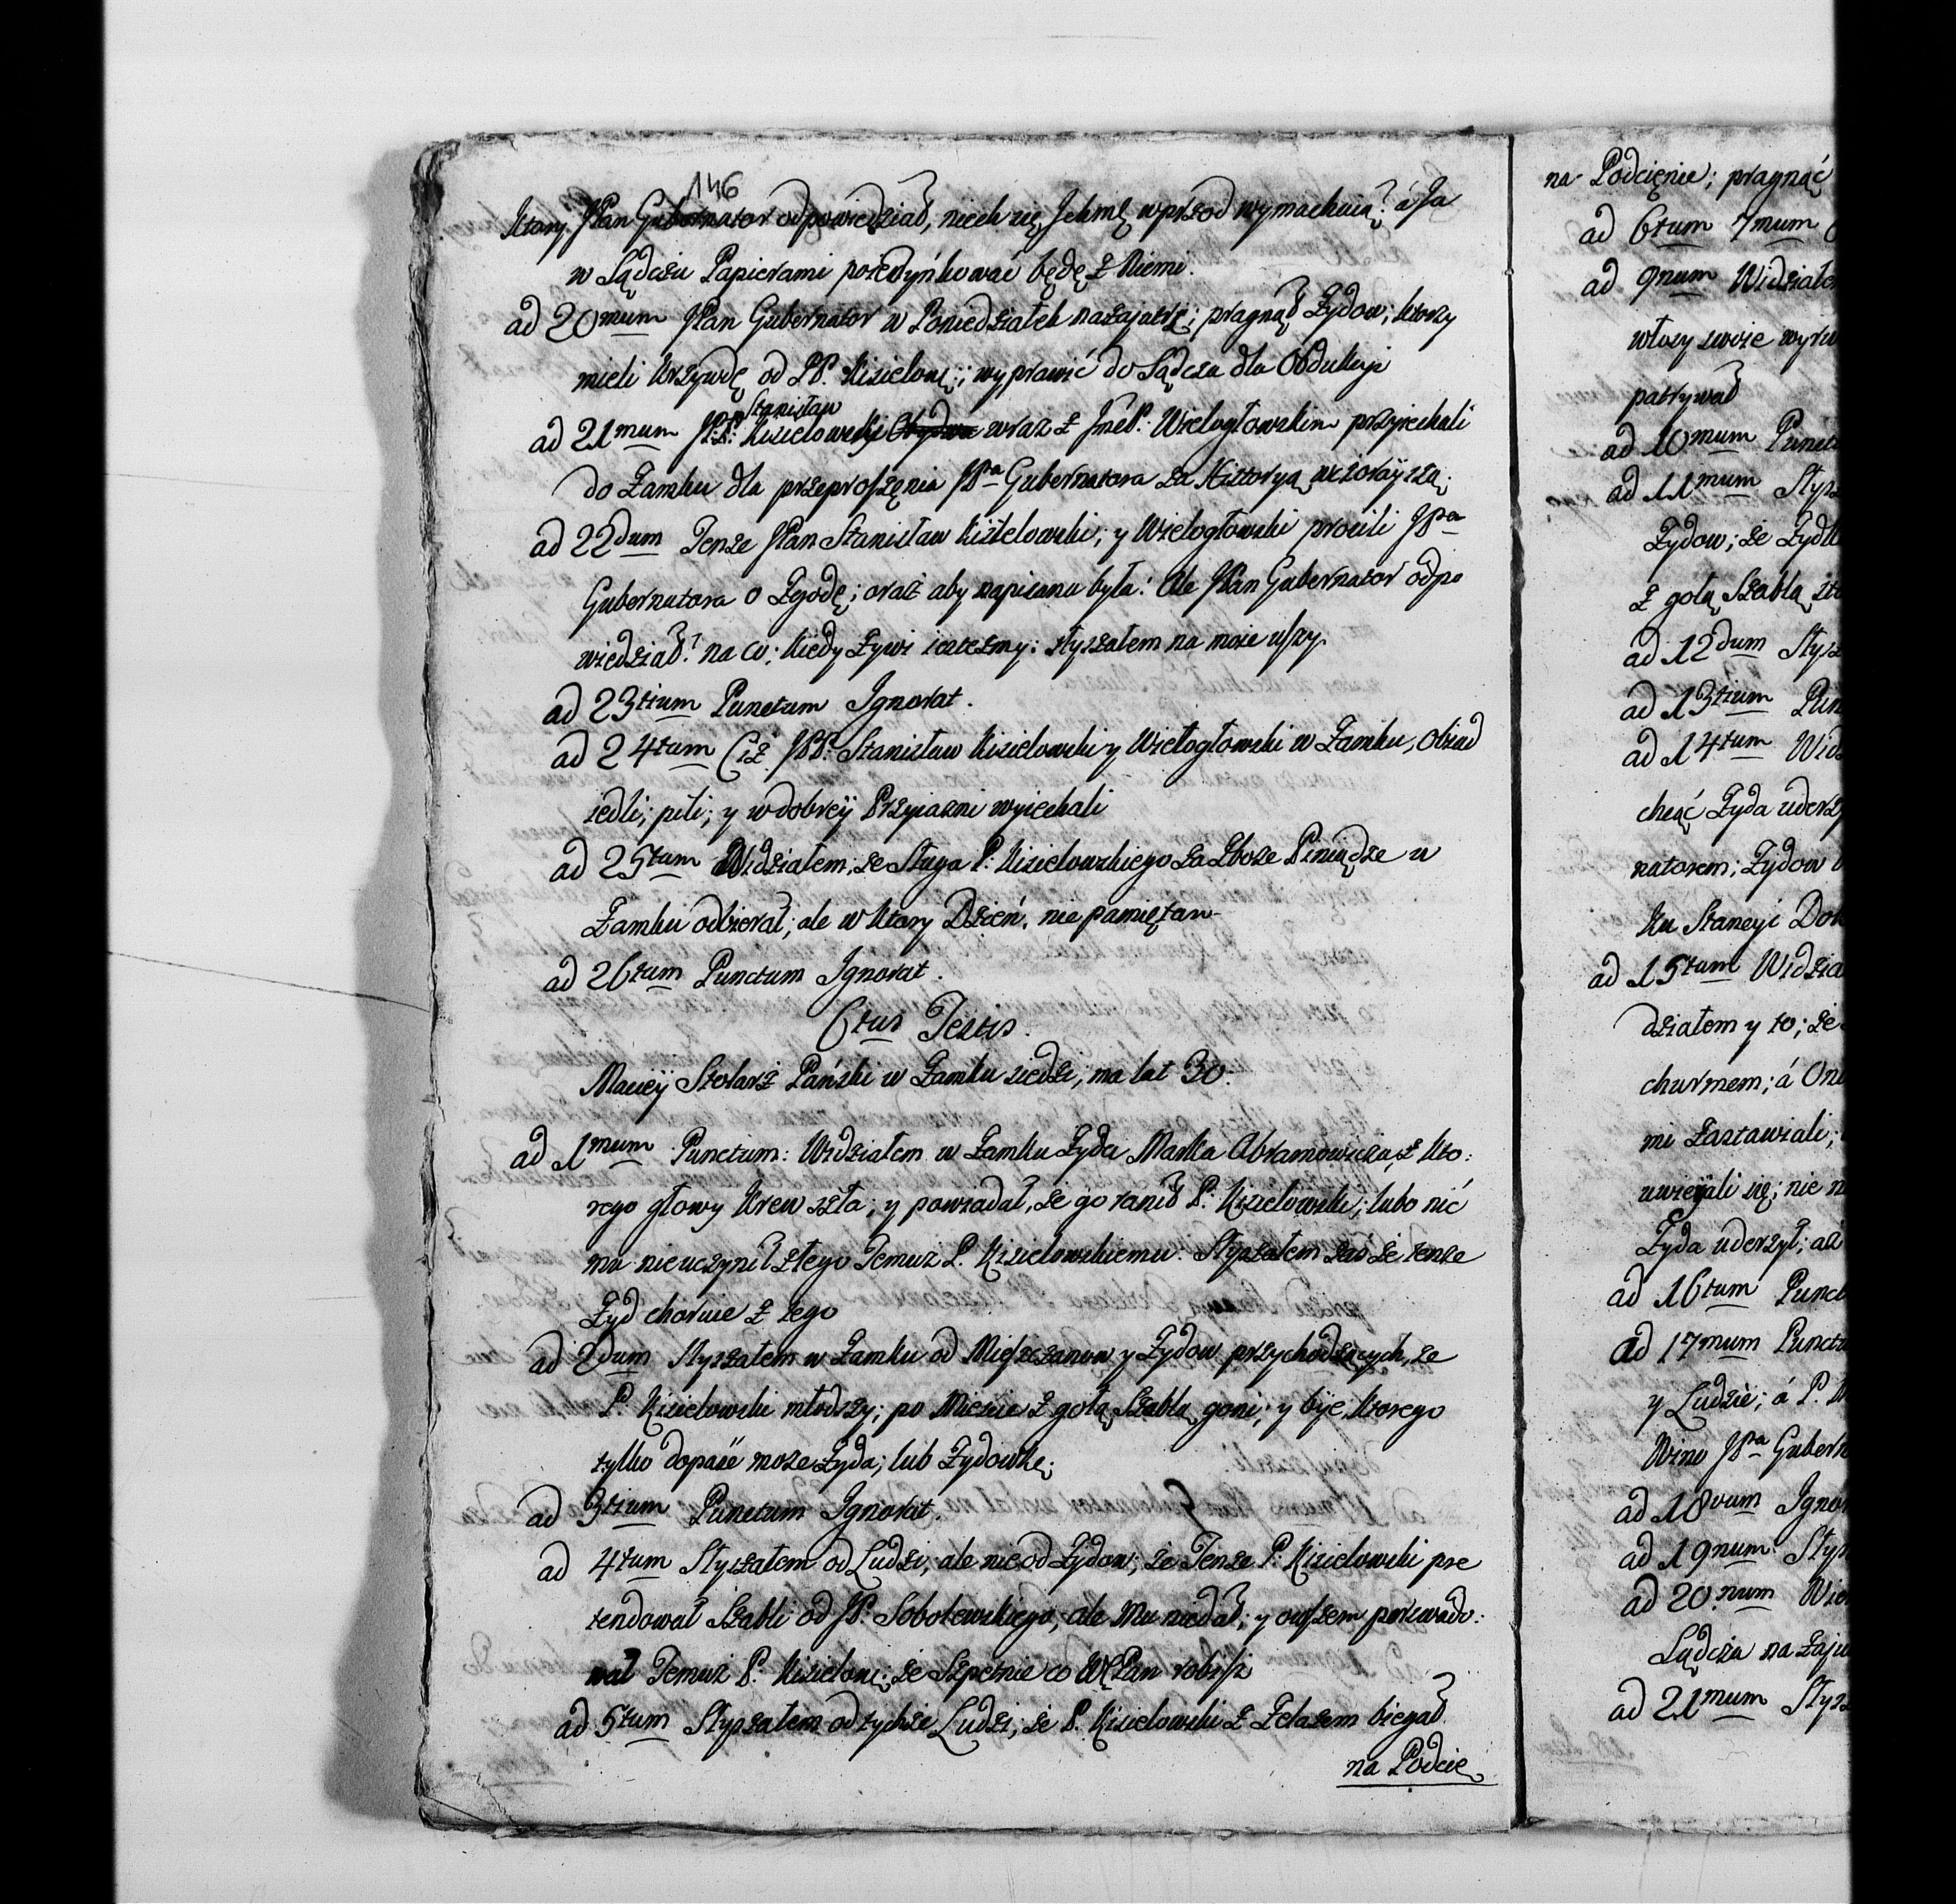 146
Ktory JPan Gubernator odpowiedział, niech się Jchmę wprzod wymachuią? á Ja
w Sądczu Papierami poiedyńkować będę z Niemi.
ad 20mum JPan Gubernator w Poniedziałek nazajutrz; pragnął Zydow; ktorzy
mieli krzywdę od JP. Kisielows:; wyprawić do Sądcza dla Obdukcyi
Stanisław
ad 21mum JP: Kisielowski wraz z JmćP: Wielogłowskim przyiechali
do Zamku dla przeproszęnia JPa Gubernatora za Historyą wczorayszą.
ad 22dum Tenze JPan Stanisław Kisielowski; y Wielogłowski prosili JPa
Gubernatora o Zgodę; oraz aby napisana była: Ale JPan Gubernator odpo
wiedział? na co; kiedy Zywi iestesmy: słyszałem na moie uszy.
ad 23tium Punctum Ignorat.
ad 24tum Ciż JPP: Stanisław Kisielowski y Wielogłowski w Zamku, Obiad
iedli; pili; y w dobrey Przyiazni wyiechali
ad 25tum Widziałem, że Sługa P: Kisielowskiego za Zboze Piniądze w
Zamku odbierał; ale w ktory Dzień. nie pamiętam
ad 26tum Punctum Ignorat.
6tus Testis.
Maciey Stolarz Pański w Zamku siedzi, ma lat 30.
ad 1mum Punctum: Widziałem w Zamku Zyda Marka Abramowicza, z kto:
rego głowy krew szła; y powiadał, że go ranił P: Kisielowski; lubo nić
mu nieuczynił złego Temuz P. Kisielowskiemu. Słyszałem zaś że tenze
Zyd choruie z tego
ad 2dum Słyszałem w Zamku od Mieszczanow y Zydow przychodzących, że
P. Kisielowski młodszy; po Miescie z gołą Szablą goni; y biie, ktorego
tylko dopaść moze Zyda; lub Zydowkę;
ad 3tium Punctum Ignorat.
ad 4tum Słyszałem od Ludzi, ale nie od Zydow; że Tenze P: Kisielowski pre
tendował Szabli od JP. Sobolewskiego, ale Mu niedał; y owszem perswado:
wał Temuż P: Kisielows: że Szpetnie co WPan robisz
ad 5tum Słyszałem od tychże Ludzi; że P. Kisielowski z Zelazem biegał
na Podcię
na Podcięnie; pragnąć
ad 6tum 7mum
ad 9num Widziałem
włosy swoie
patrywał
ad 10mum Punct
ad 11mum Słysz
Zydow; że
z gołą Szablą
ad 12dum Słysz
ad 13tium Pun
ad 14tum Widz
chcąć Zyda uderzy
natorem; Zydow
ku Stancyi
ad 15tum Widzia
działem y to; że
churmem; á Oni
mi Zastawiali;
uwieyali się; nie
Zyda uderzył; aż
ad 16tum Punct
ad 17mum Punctu
y Ludzie; á P.
Wino JPa Gubern
ad 18vum Ignor
ad 19num Słysz
ad 20num
Sądcza na zaju
ad 21mum Słysz